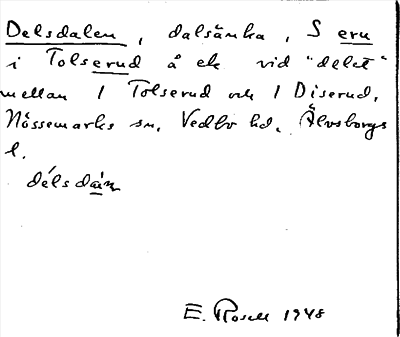 Delsdalen, dalsänka, S eru
i Tolserud å ek vid "delet"
mellan 1 Tolserud och 1 Diserud,
Nössemarks sn, Vedbo hd, Älvsborgs
l.
délsdàın
E. Rosell 1948